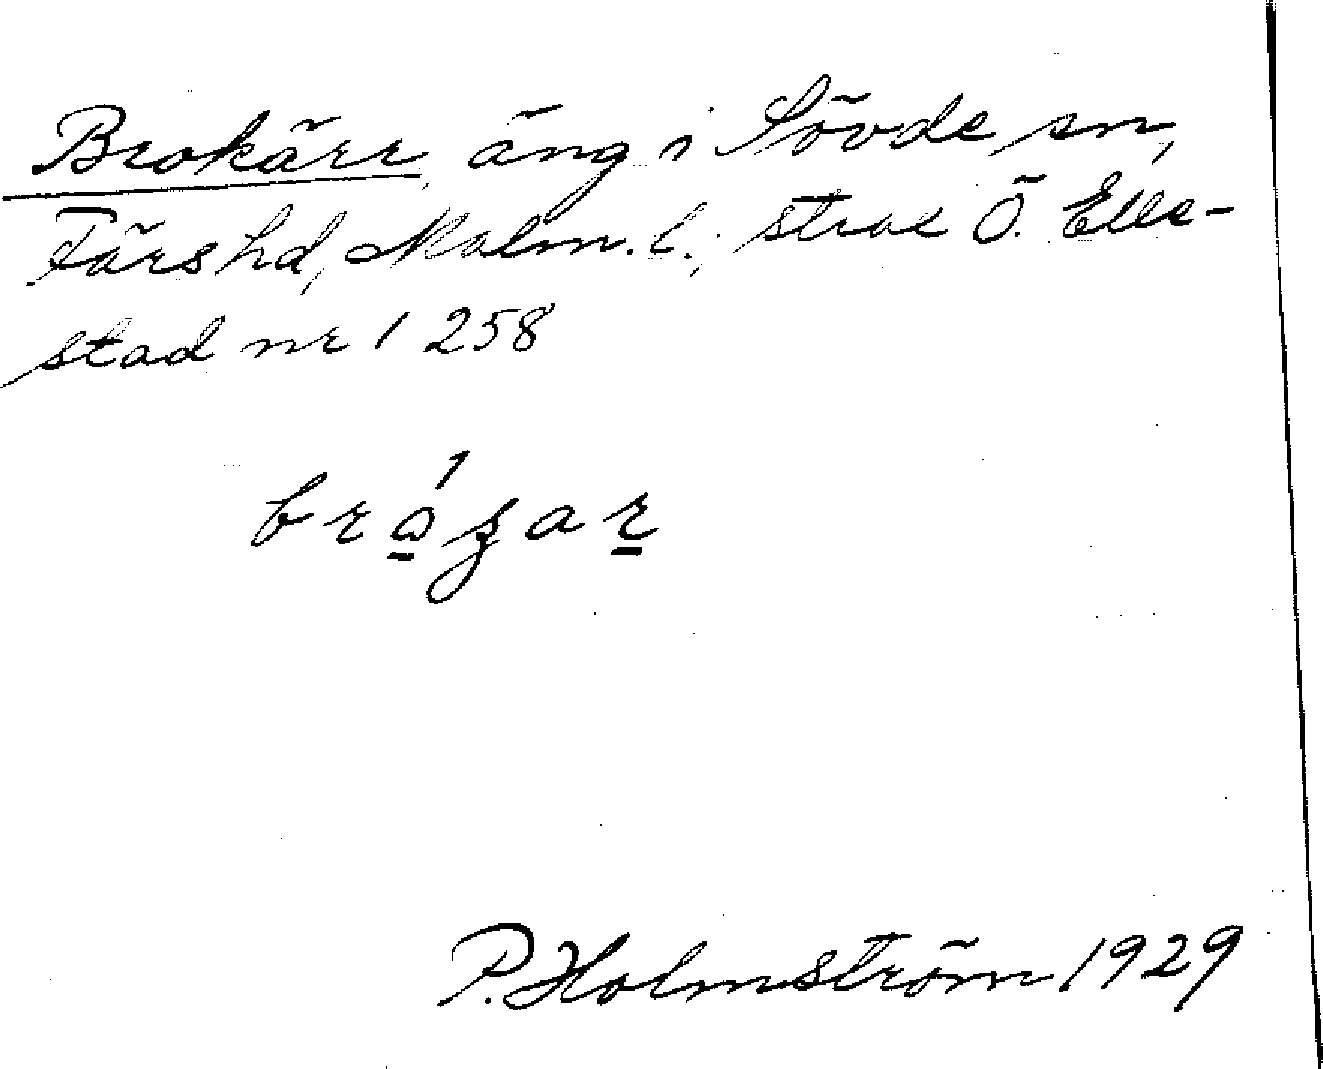 Brokärr, äng i Sövde sn,
Färs hd, Malm. l.; strax Ö. Elle-
stad nr 1 258
brázar
P. Holmström 1929